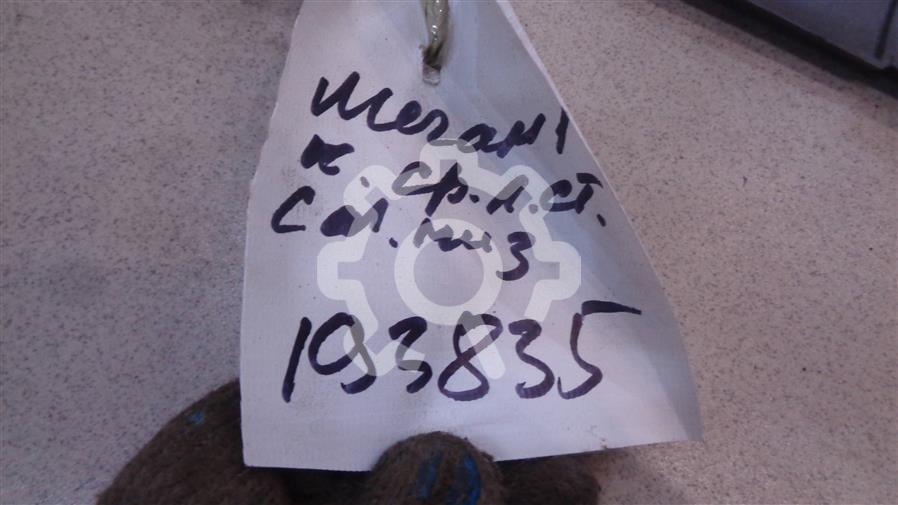 Меган 1
к. ср. л. ст.
Сал. низ
193835